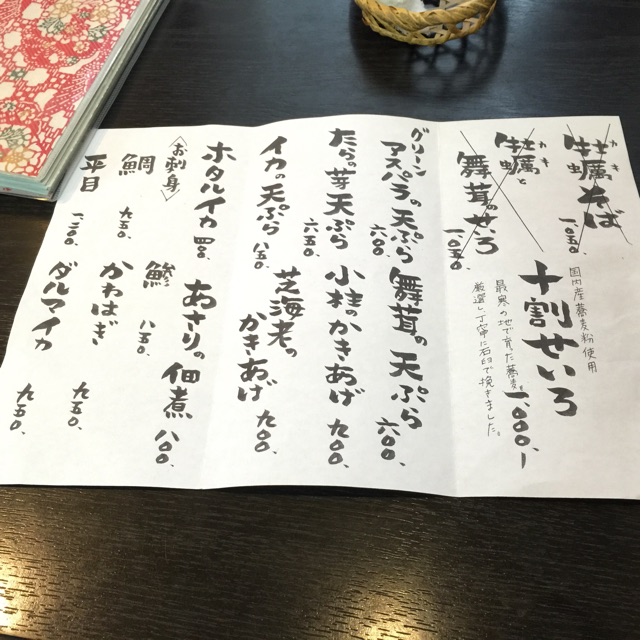 牡蠣そば
カキ
一〇五〇、
牡蠣と
カキ
舞茸のせいろ
一〇五〇、
国内産蕎麦粉使用
十割せいろ
一、〇〇〇、ー
最寒の地で育った蕎麦を
厳選し丁寧に石臼で挽きました。
グリーン
アスパラの天ぷら
六〇〇、
舞茸の天ぷら
六〇〇、
たらの芽天ぷら
六五〇、
小柱のかきあげ
九〇〇、
イカの天ぷら
八五〇、
芝海老の
かきあげ
九〇〇、
ホタルイカ
あさりの佃煮
八〇〇、
〈お刺身〉
鯛
九五〇、
鯵
八五〇、
かわはぎ
九五〇、
平目
一二〇〇、
ダルマイカ
九五〇、